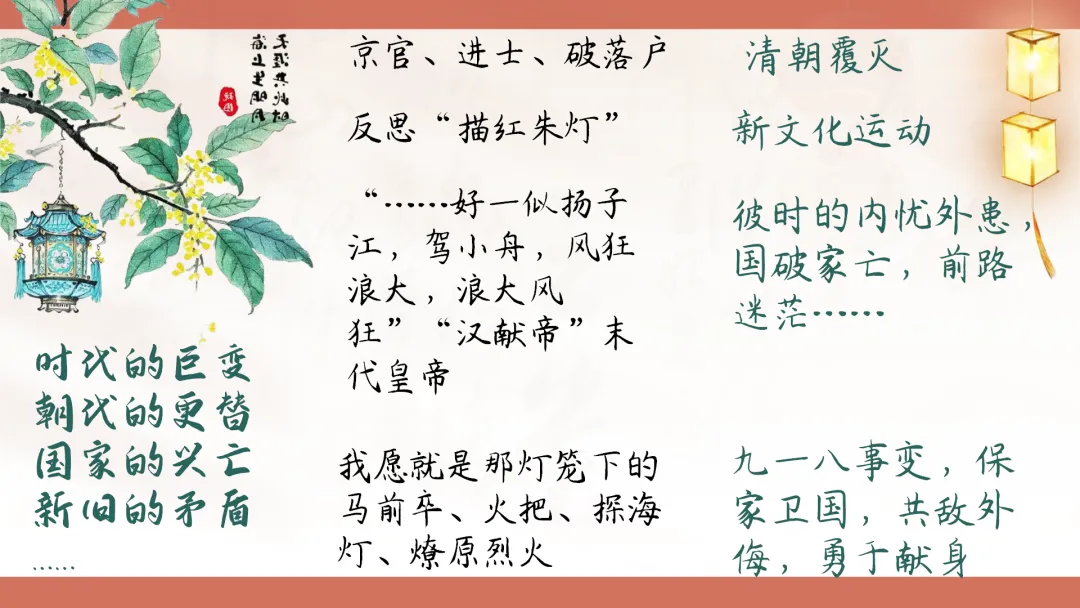 海上生明月
天涯共此时
时代的巨变
朝代的更替
国家的兴亡
新旧的矛盾
……
京官、进士、破落户
反思“描红朱灯”
“……好一似扬子
江，驾小舟，风狂
浪大，浪大风
狂”“汉献帝”末
代皇帝
我愿就是那灯笼下的
马前卒、火把、探海
灯、燎原烈火
清朝覆灭
新文化运动
彼时的内忧外患，
国破家亡，前路
迷茫……
九一八事变，保
家卫国，共敌外
侮，勇于献身